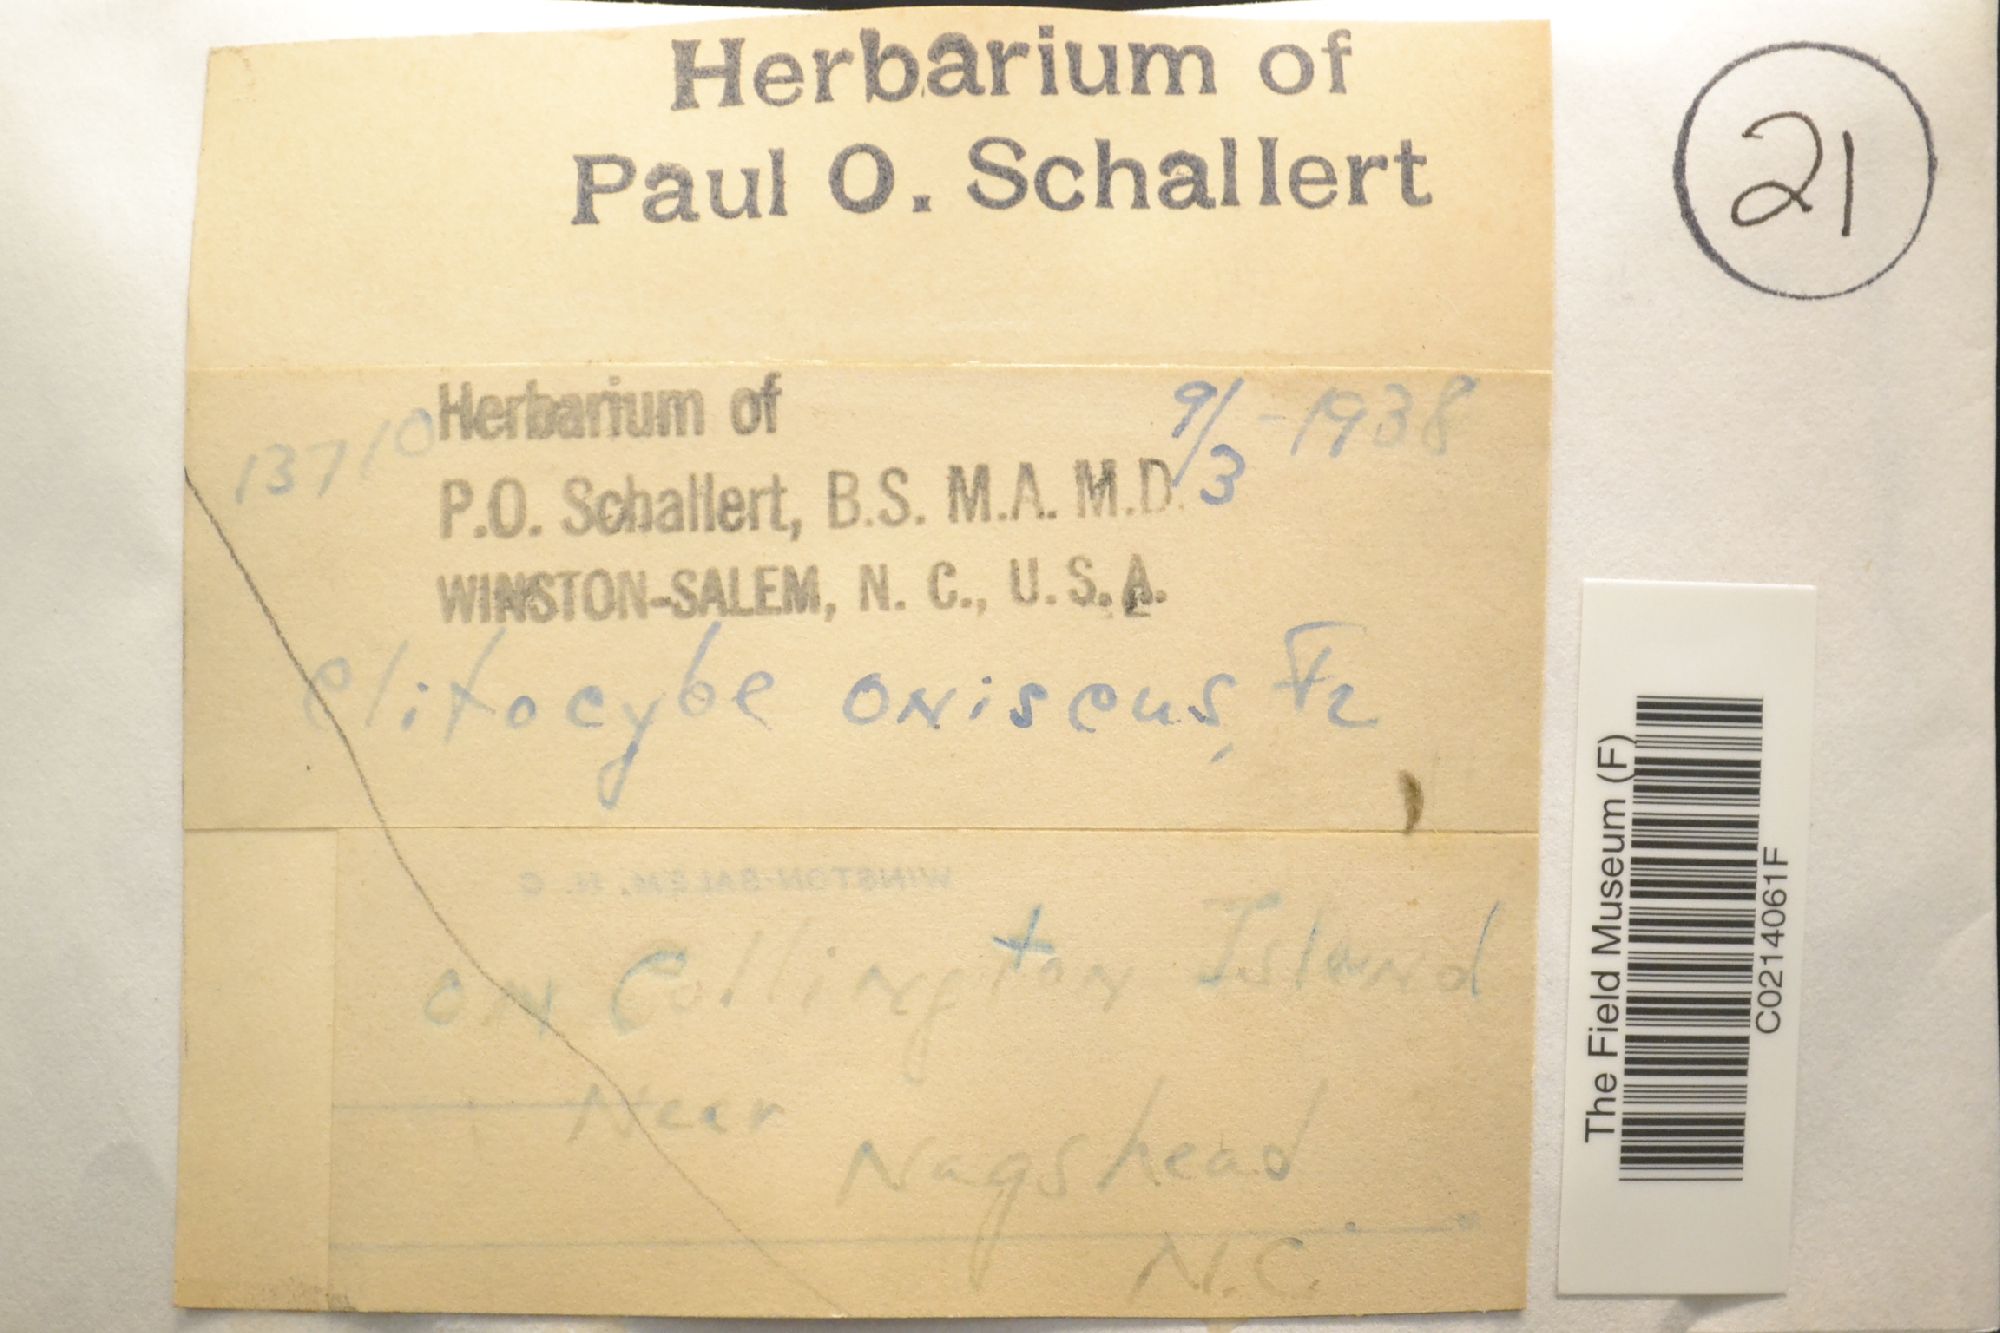 Herbarium of
Paul O. Schallert
21
13710
Herbarium of
P.O. Schallert, B.S. M.A. M.D.
WINSTON-SALEM, N. C., U.S.A.
9/3-1938
Clitocybe oniscus, Fr
WINSTON-SALEM, N. C.
on Collington Island
Near
Nagshead
N.C.
The Field Museum (F)
C0214061F